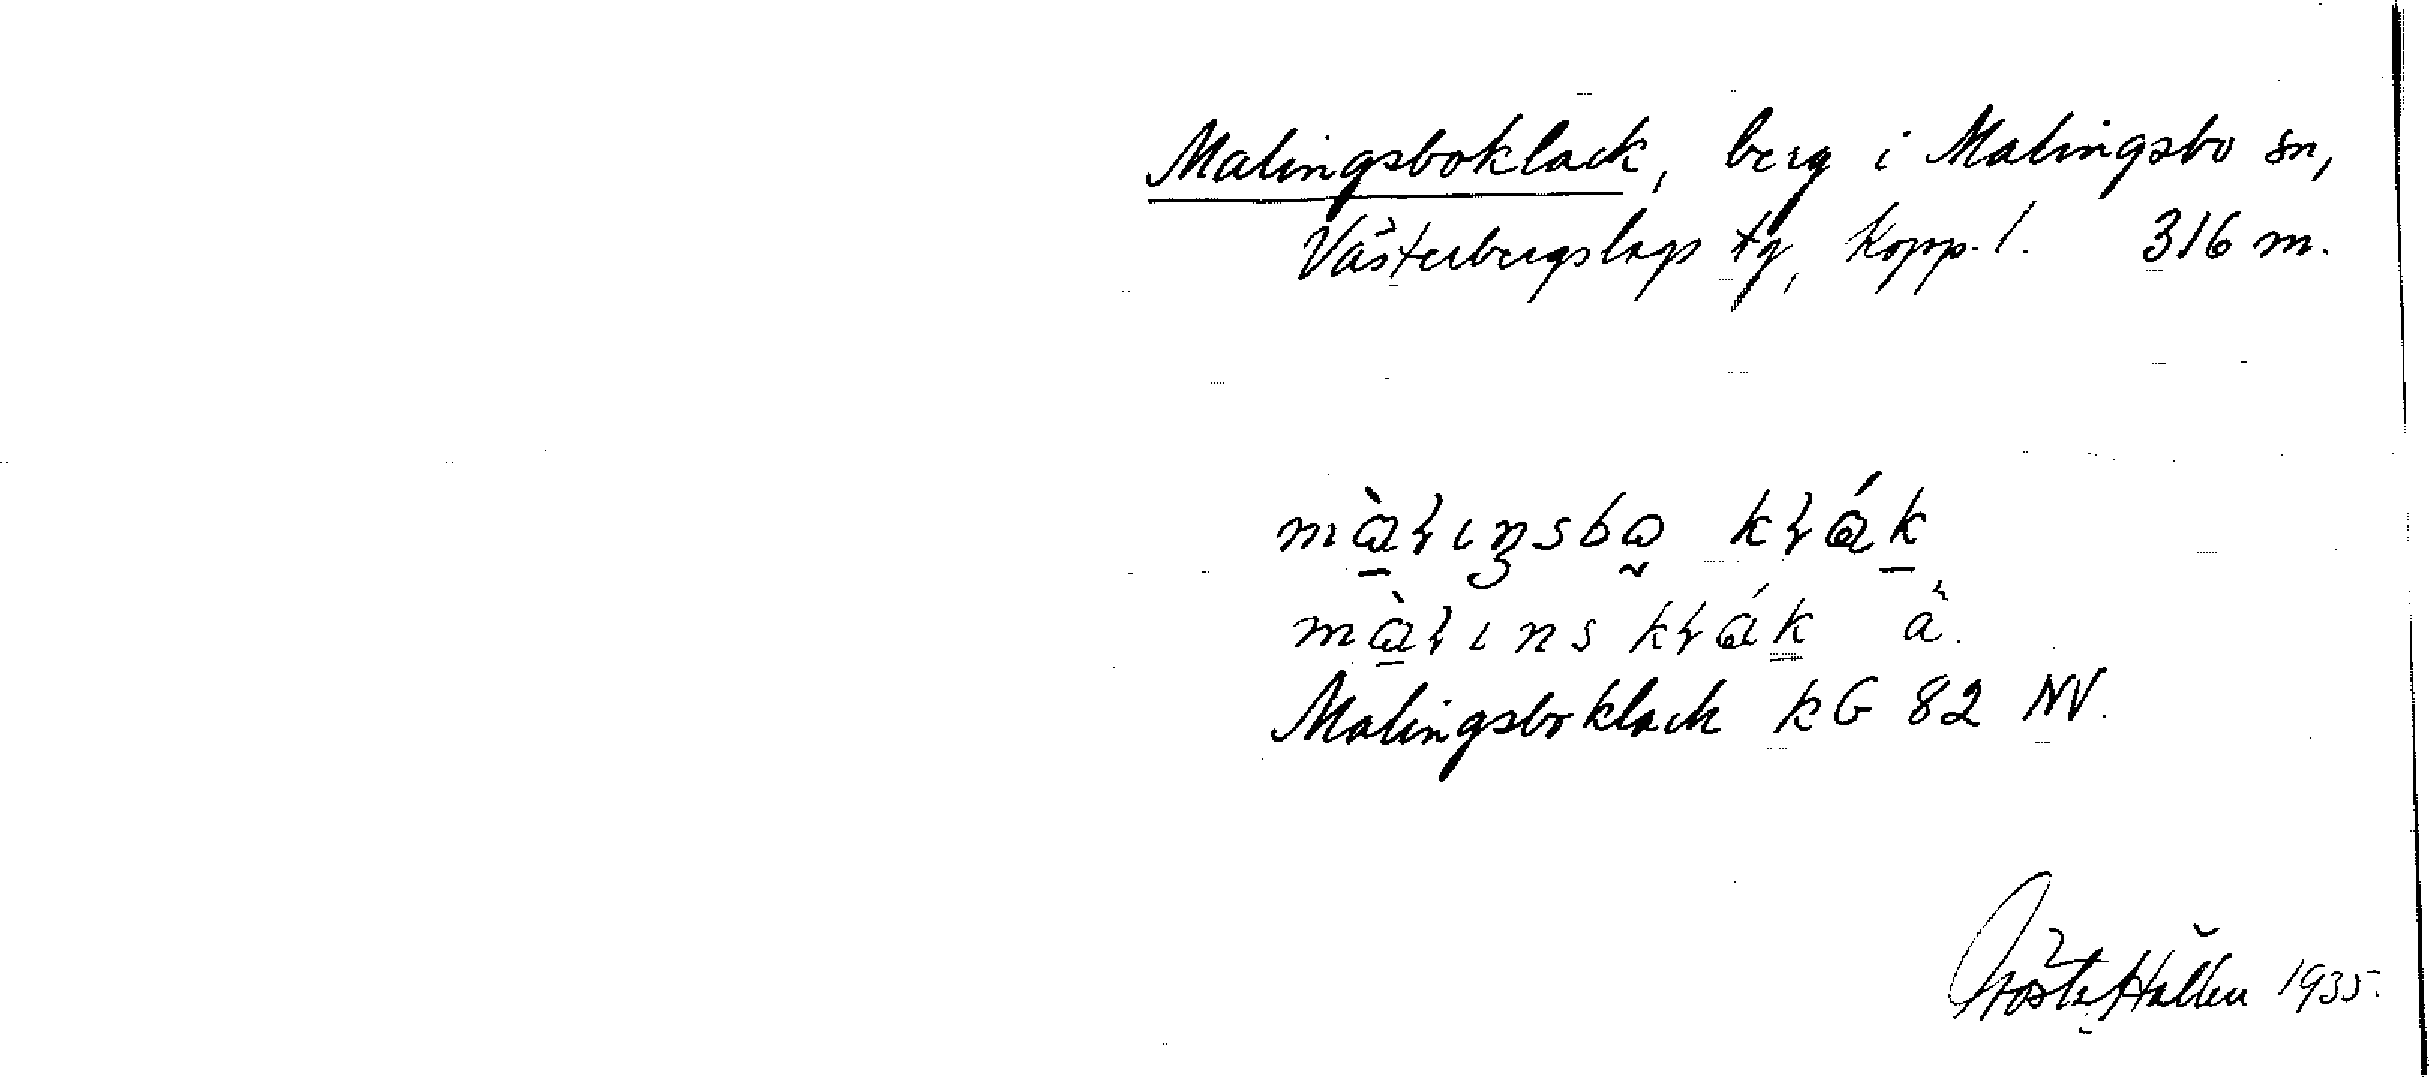 Malingsboklack, berg i Malingsbo sn,
Västerbergslags tg, Kopp. l. 316 m.
mà̱ɽıŋsbo̰ kɽáḵ
mà̱ɽıns kɽák̳ ä̀.
Malingsboklack kG 82 NV.
Gösta Hallén 1935.